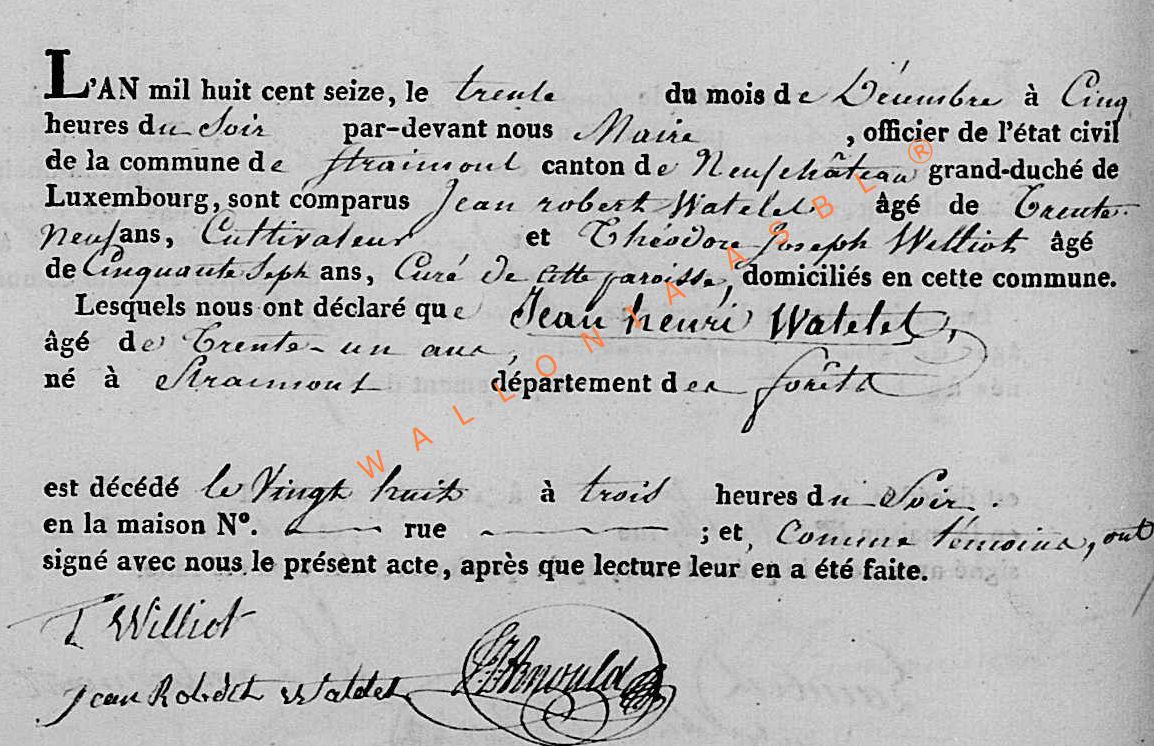 L'AN mil huit cent seize, le trente du mois de Décembre à Cinq
heures du Soir par-devant nous Maire , officier de l'état civil
de la commune de Straimont canton de Neufchâteau grand-duché de
Luxembourg, sont comparus Jean robert Watelet âgé de Trente-
neuf ans, Cultivateur et Théodore Joseph Williot âgé
de Cinquante Sept ans, Curé de cette paroisse, domiciliés en cette commune.
Lesquels nous ont déclaré que Jean henri Watelet,
âgé de Trente-un ans,
né à Straimont département des forêts
est décédé le Vingt huit à trois heures du Soir.
en la maison N°. rue ; et, Comme témoins, ont
signé avec nous le présent acte, après que lecture leur en a été faite.
T Williot
Jean Robert Watelet Arnould
WALLONIA ASBL ®